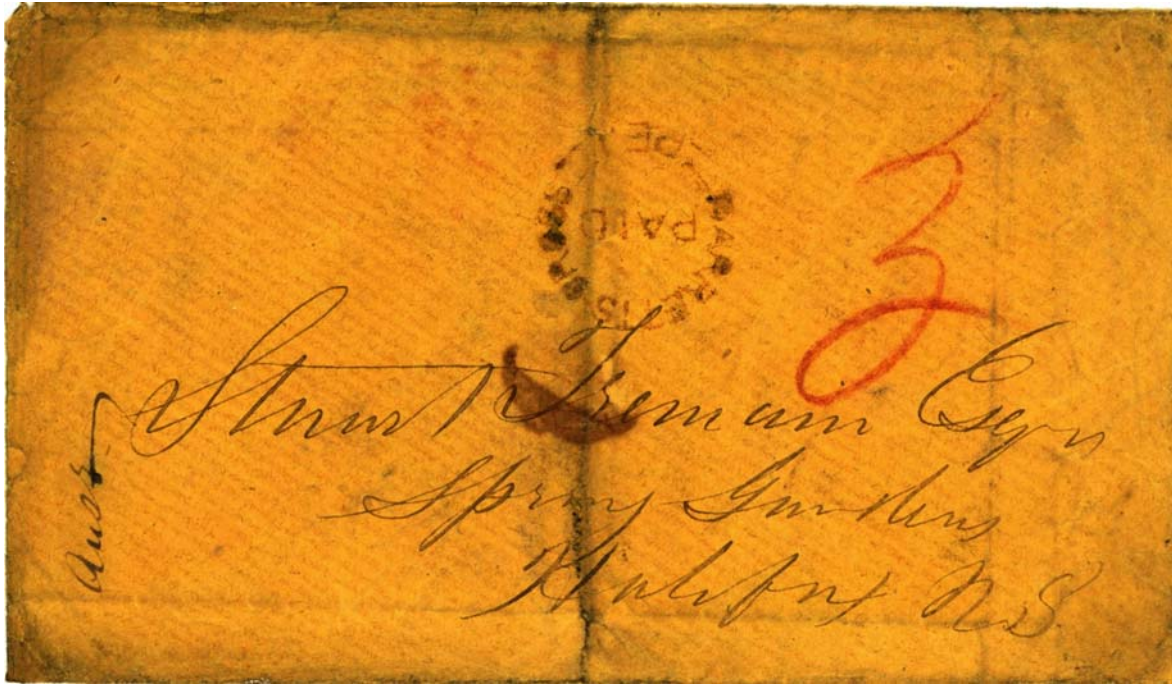 PER
BARRETTS
PAID
3
Stuart Tremain Esqr
Spring Gardens
Halifax N.S.